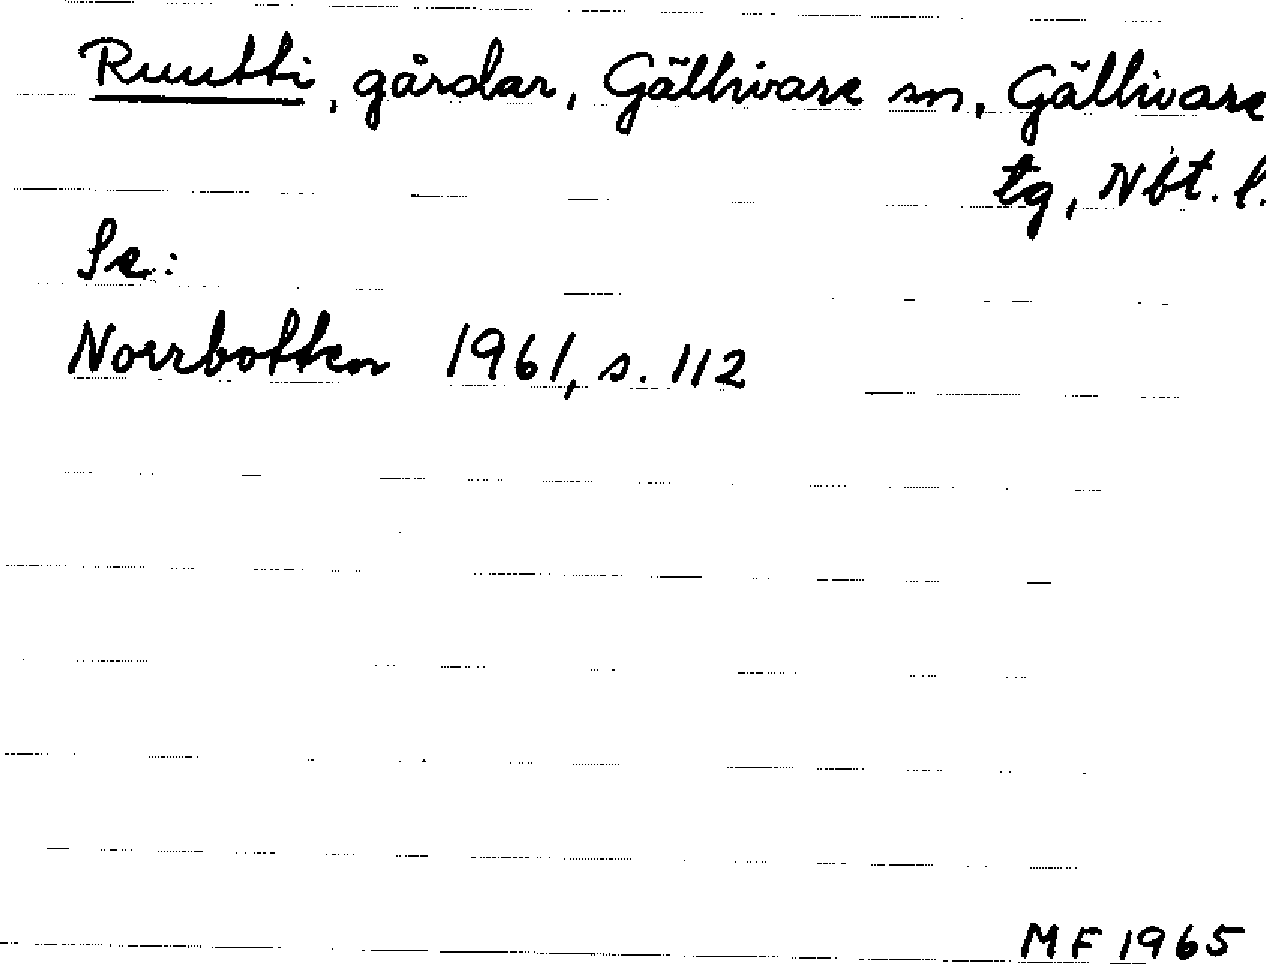 Ruutti, gårdar, Gällivare sn, Gällivare
tg, Nbt. l.
Se:
Norrbotten 1961, s. 112
MF 1965